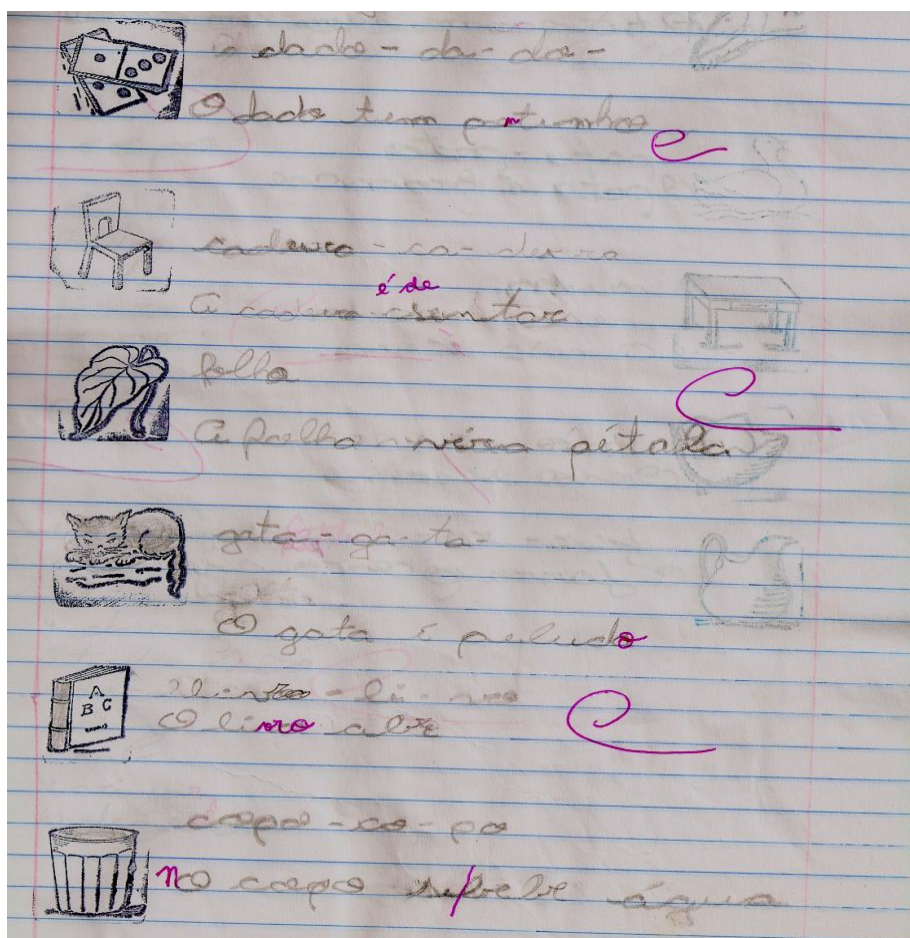 dado - da - do -
O dado tem pontinho
cadeira - ca - dei ra
é de
A cadeira sentar
folha
A folha vira pétala
gata - ga - ta -
O gata é peludo
livro - li - vro
A B C
O livro abre
copo - co - po
no copo se bebe água